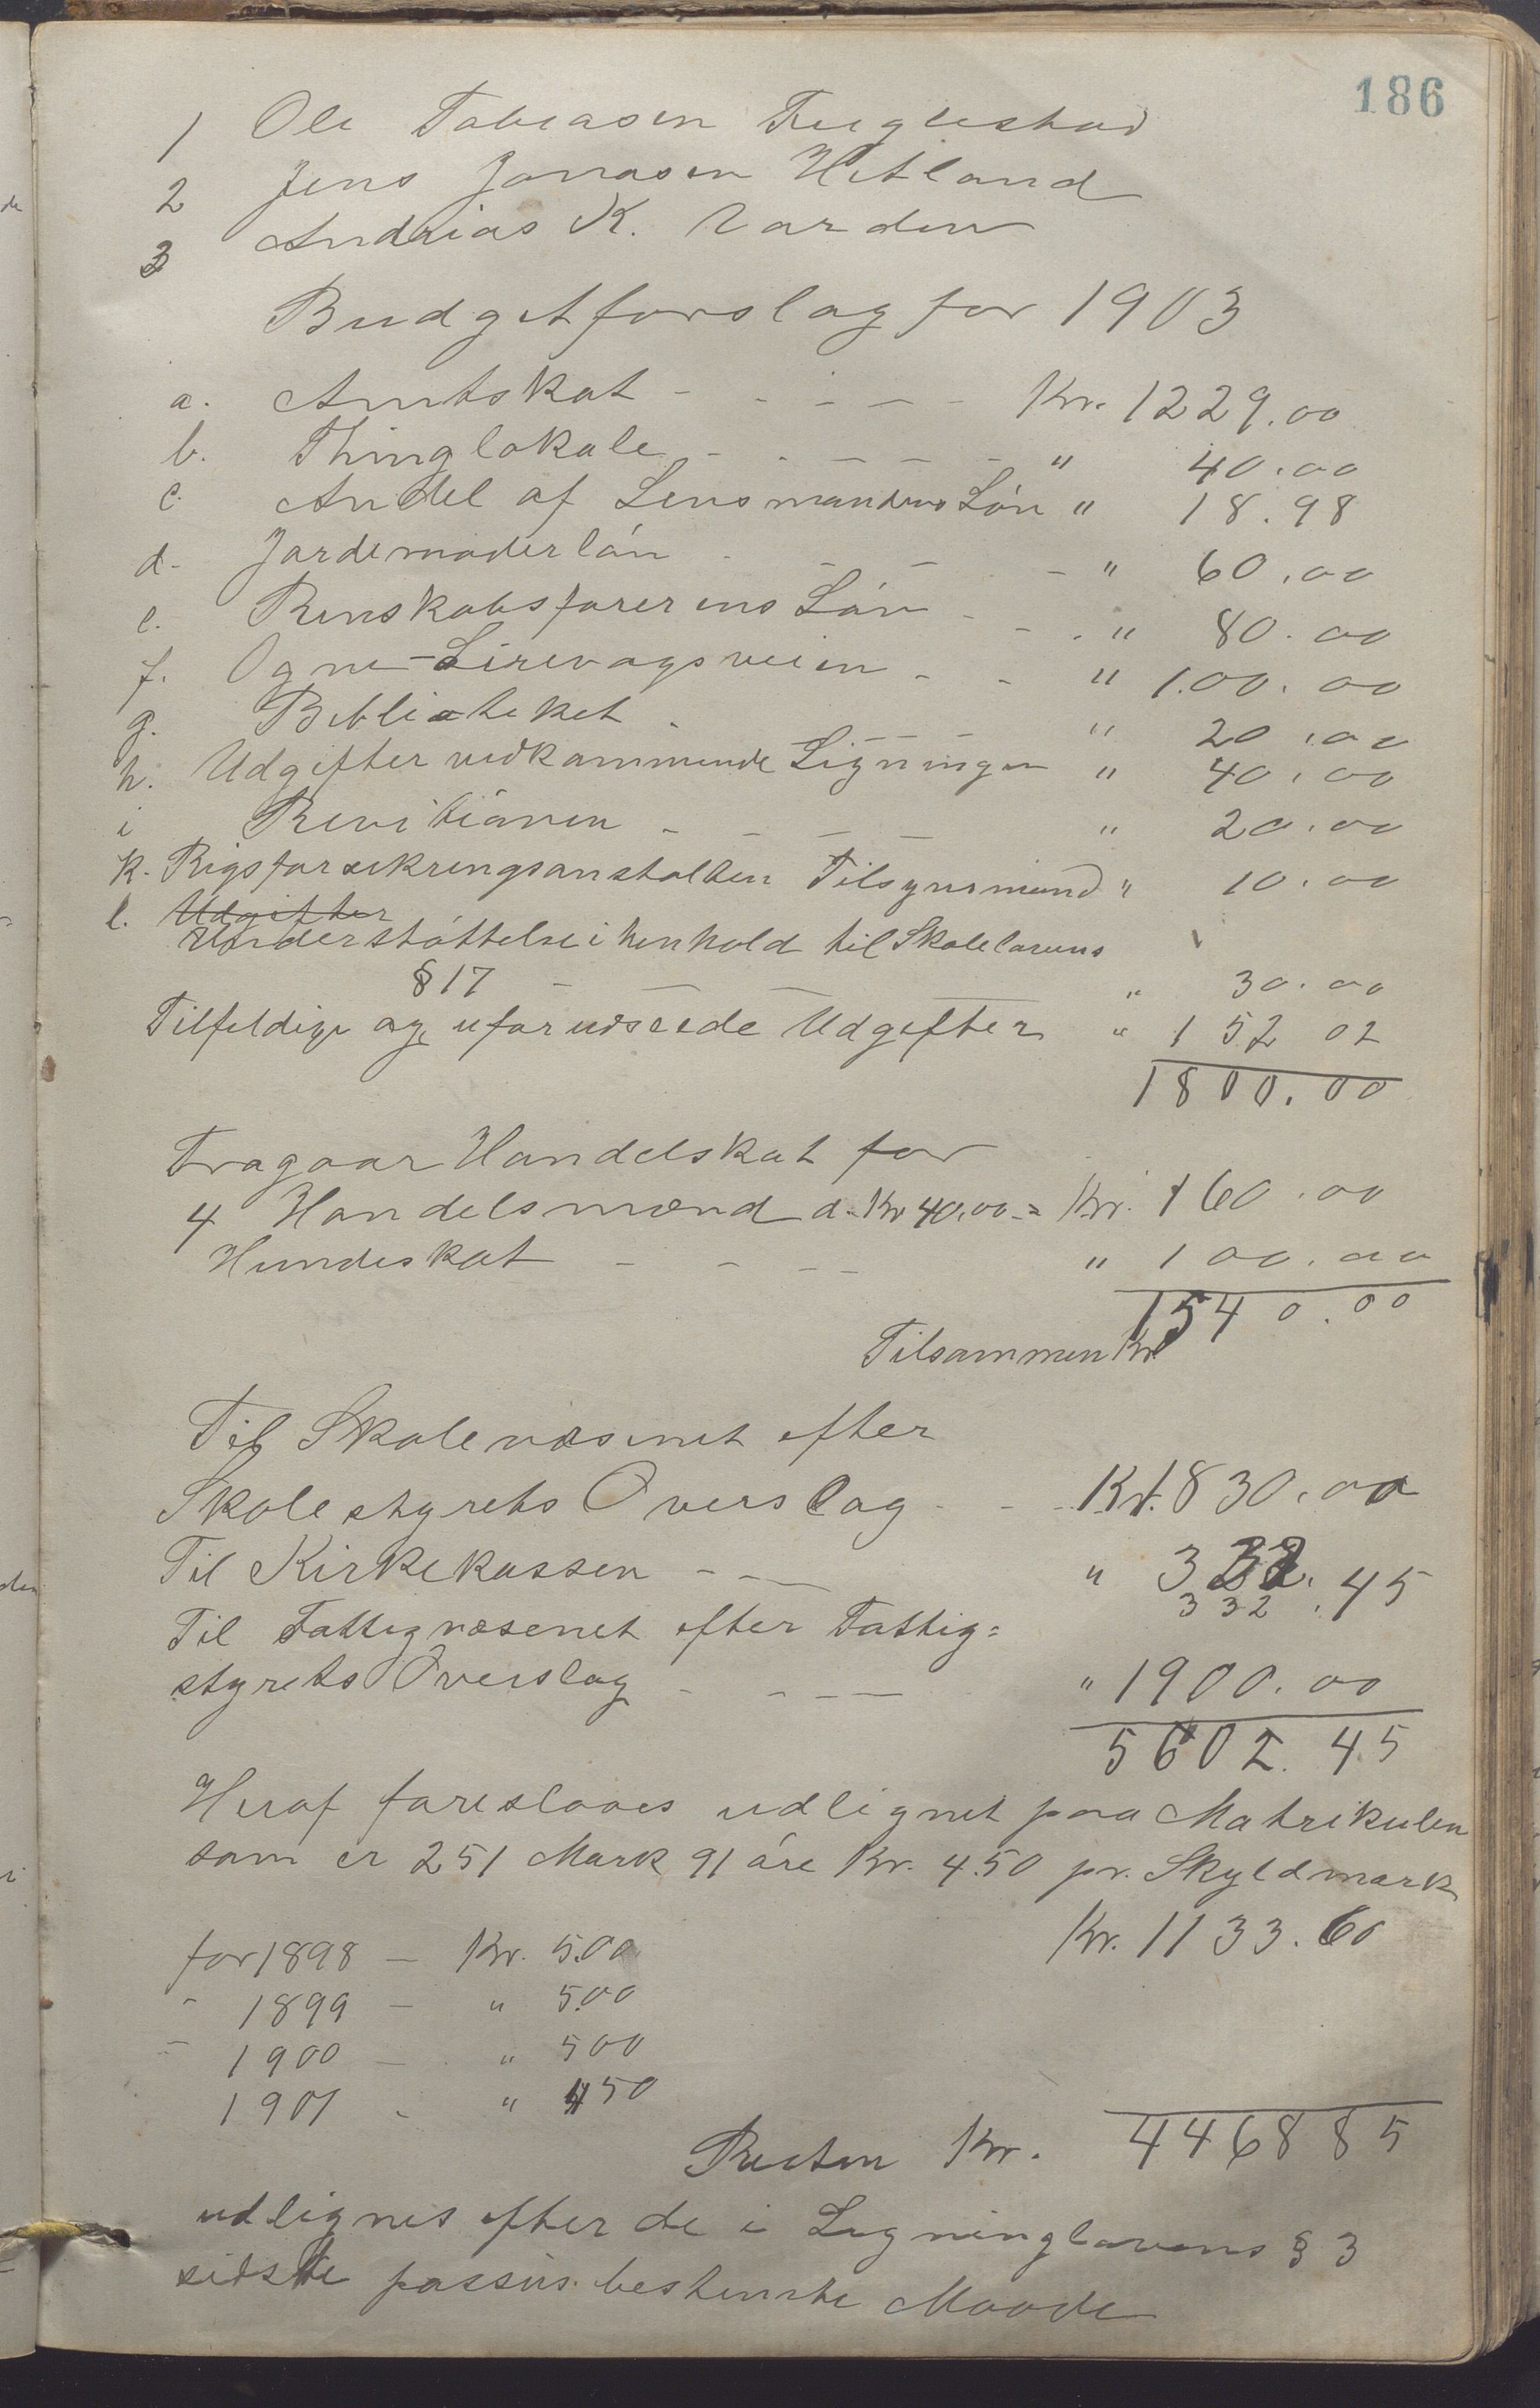 186
1 Ole Tobiasen Fuglestad
2 Jens Jonasen Hetland
3 Andreas K. Varden
Budgetforslag for 1903
a. Amtskat - - - - - Kr. 1229.00
b. Thinglokale - - - - - " 40.00
c. Andel af Lensmandens Løn " 18.98
d. Jordemoderløn - - - - " 60.00
e. Renskabsførerens Løn - - - " 80.00
f. Ogne-Sirevogsveien - - " 100.00
g. Biblioteket - - - - " 20.00
h. Udgifter vedkommende Ligningen " 40.00
i Revitionen - - - - " 20.00
k. Rigsforsekringsanstalten Tilsynsmænd " 10.00
l. Udgifter
Understøttelse i henhold til Skolelovens
§ 17 - - - - " 30.00
Tilfeldige og uforudseede Udgifter " 152 02
1800.00
Fragaar Handelskat for
4 Handelsmænd a. Kr 40.00 = Kr. 160.00
Hundeskat - - - - " 100.00
1540.00
Tilsammen Kr.
Til Skolevæsenet efter
Skolestyrets Overslag - - Kr. 1830.00
Til Kirkekassen - - - " 332.45
332
Til Fattigvæsenet efter Fattig=
styrets Overslag - - - - " 1900.00
5602.45
Heraf foreslaaes udlignet paa Matrikulen
som er 251 Mark 91 øre Kr. 4.50 pr. Skyldmark
Kr. 1133.60
for 1898 - Kr. 5.00
" 1899 - " 5.00
" 1900 - " 500
1901 - " 450
Resten Kr. 446885
udlignes efter de i Ligninglovens § 3
sidste passus bestemte Maade